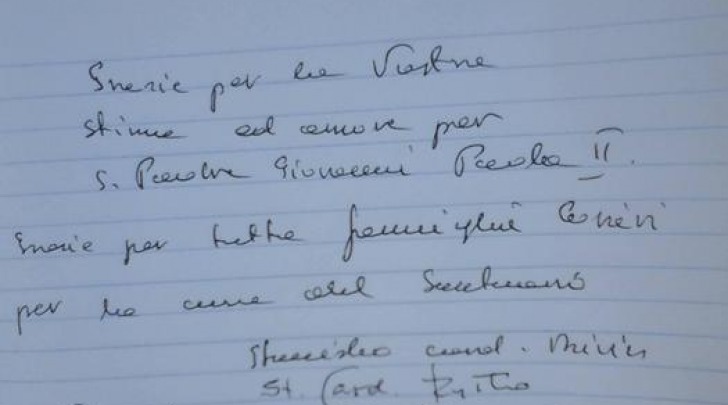 Grazie per la Vostra
stima ed amore per
S. Padre Giovanni Paolo II.
Grazie per tutta famiglia
per la cura del Santuario
card.
St. Card. Ryłko